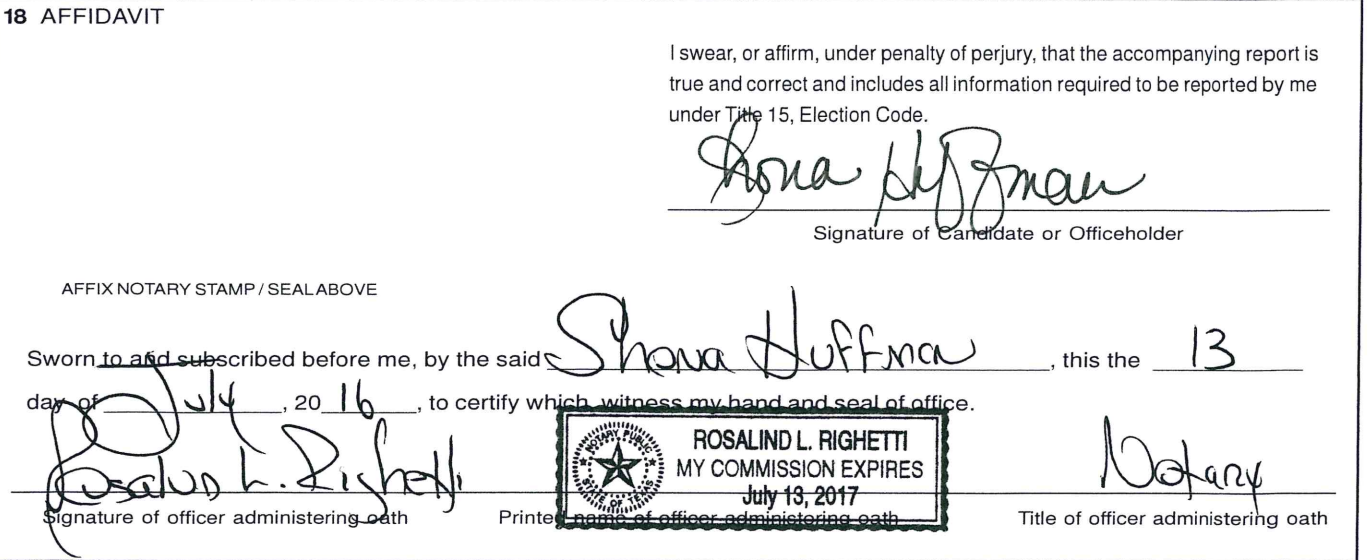 18 AFFIDAVIT
I swear, or affirm, under penalty of perjury, that the accompanying report is
true and correct and includes all information required to be reported by me
under Title 15, Election Code.
Shona Huffman
Signature of Candidate or Officeholder
AFFIX NOTARY STAMP / SEAL ABOVE
Sworn to and subscribed before me, by the said Shona Huffman, this the 13
day of July, 20 16, to certify which, witness my hand and seal of office.
NOTARY PUBLIC
STATE OF TEXAS
ROSALIND L. RIGHETTI
MY COMMISSION EXPIRES
July 13, 2017
Rosalind L. Righetti
Notary
Signature of officer administering oath
Printed name of officer administering oath
Title of officer administering oath